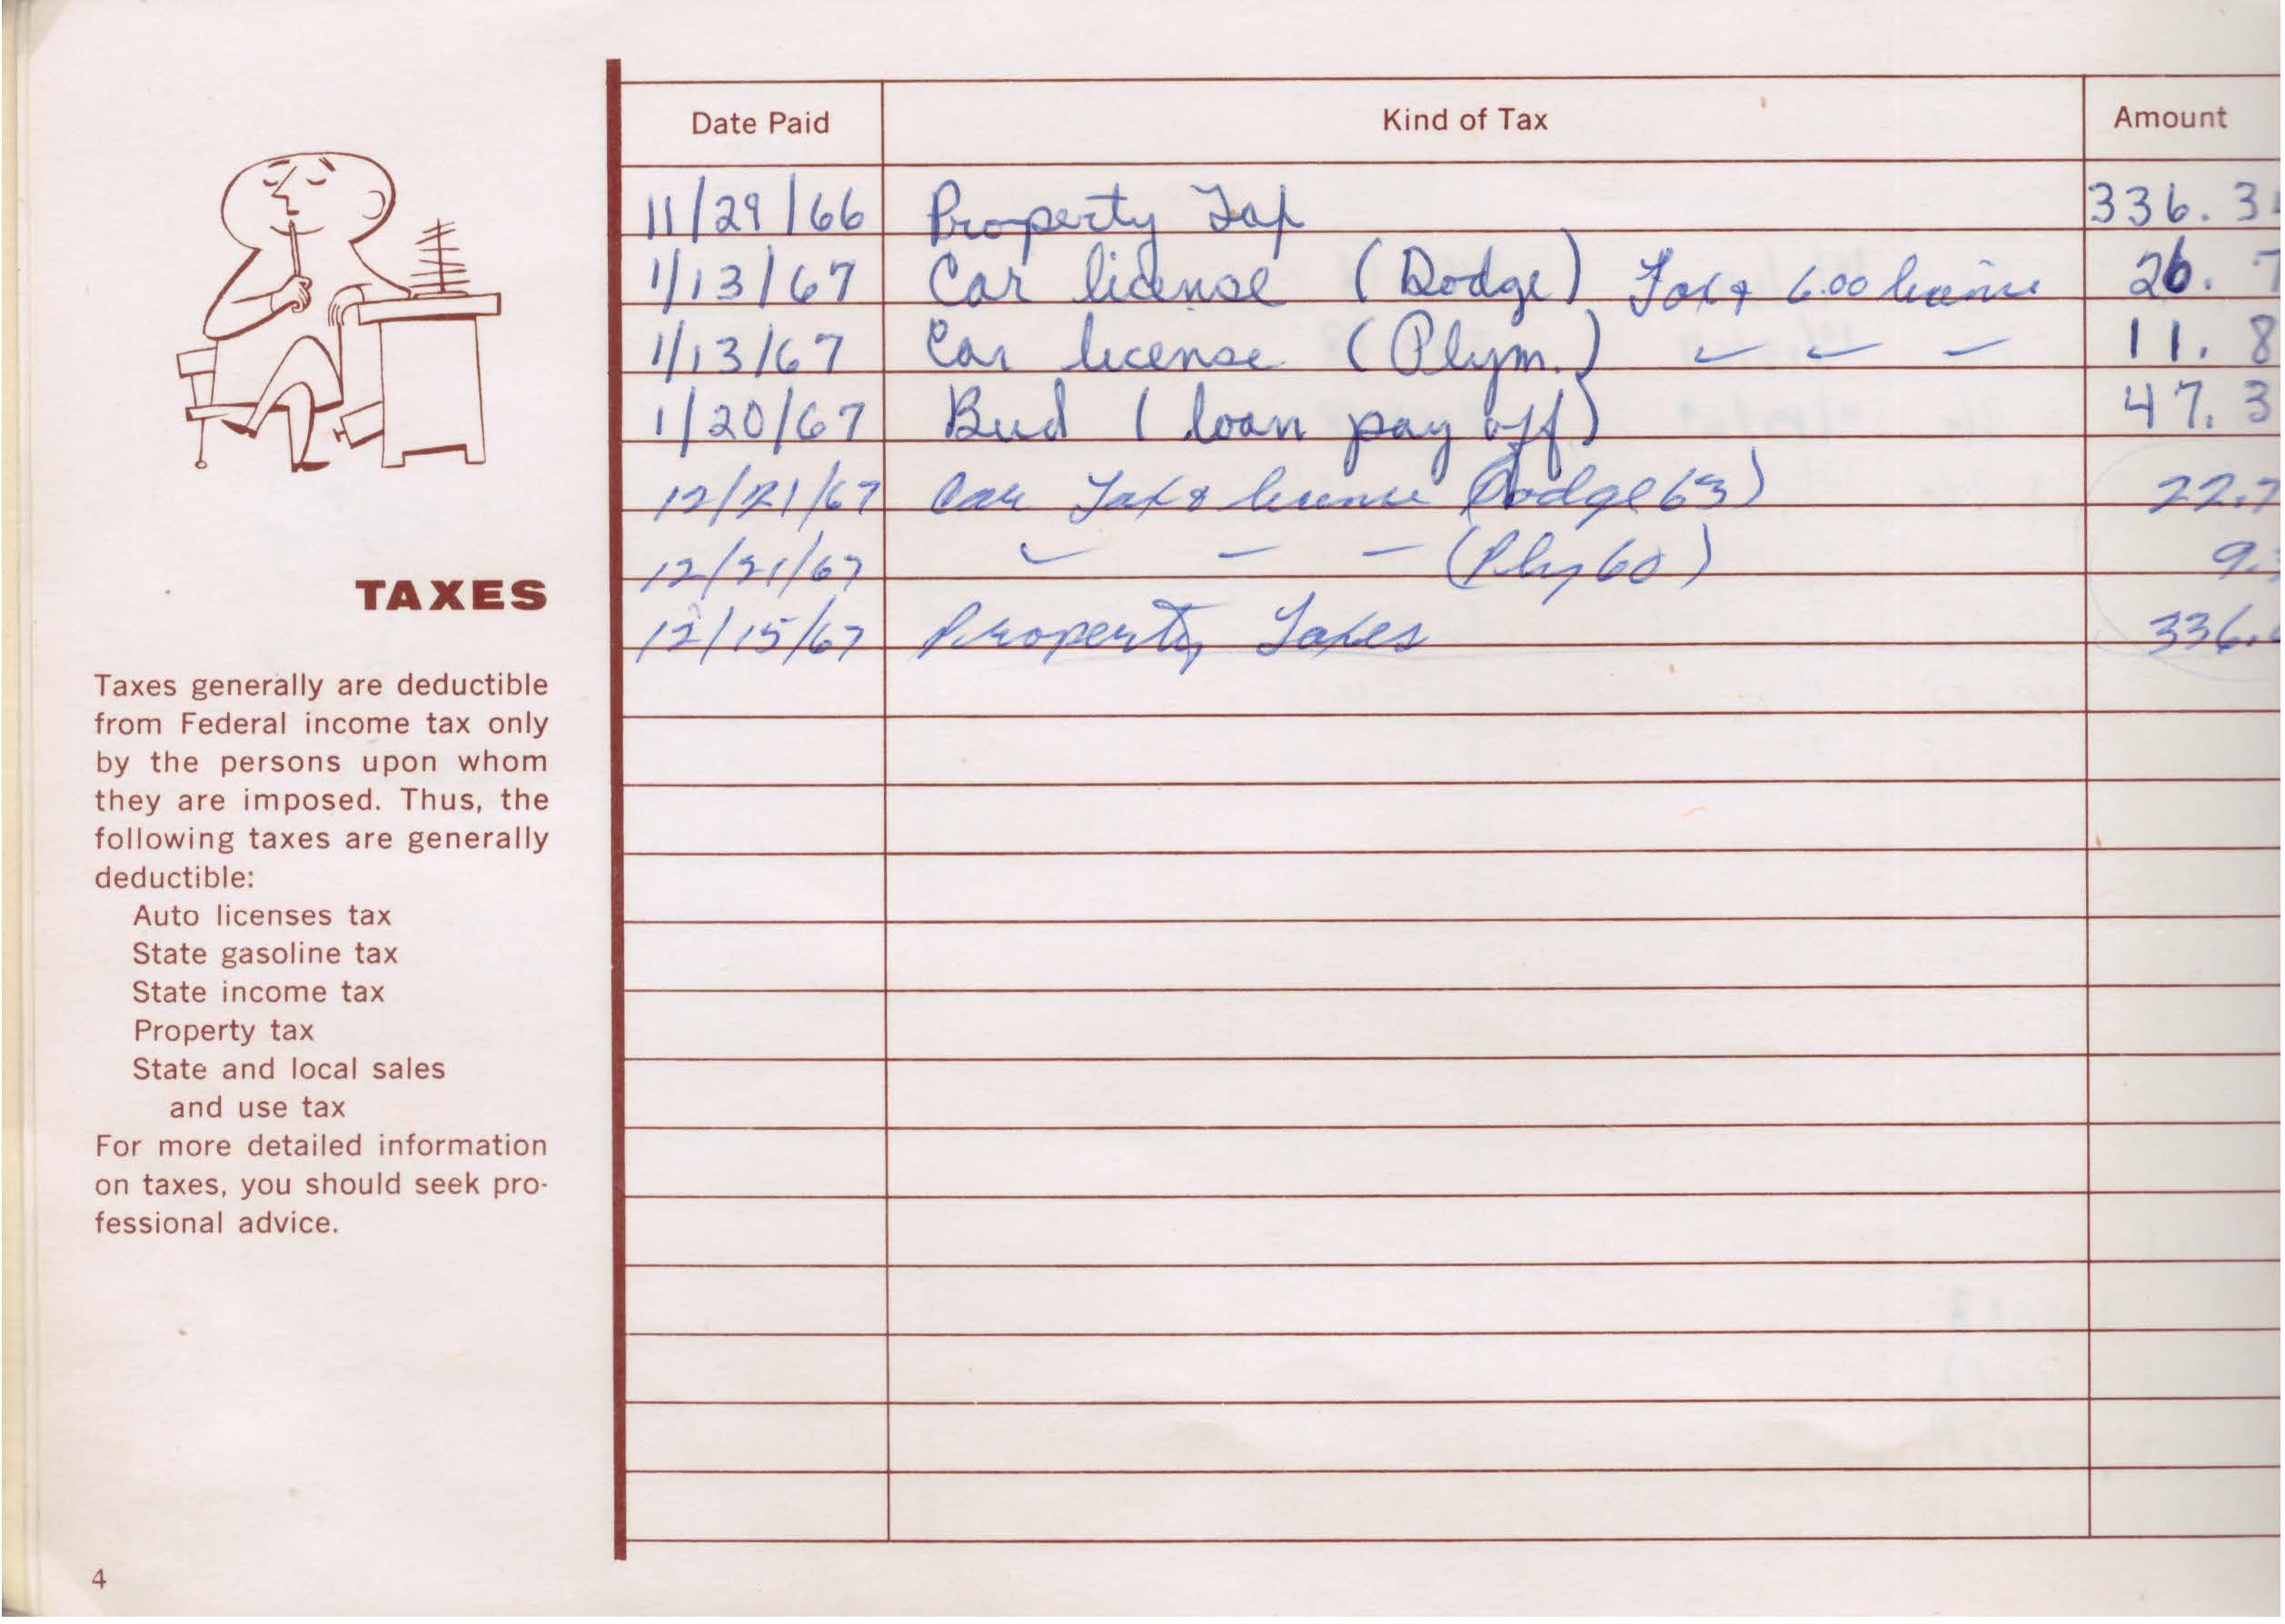 Date Paid Kind of Tax Amount
11/29/66 Property Tax 336.3
1/13/67 Car license (Dodge) Tax & 6.00 license 26.7
1/13/67 Car license (Plym.) 11.8
1/20/67 Bud (loan pay off) 47.3
12/21/67 Car Tax & license (Dodge 63) 22.7
12/21/67 (Ply 60) 9.
12/15/67 Property Taxes 336.
TAXES
Taxes generally are deductible
from Federal income tax only
by the persons upon whom
they are imposed. Thus, the
following taxes are generally
deductible:
Auto licenses tax
State gasoline tax
State income tax
Property tax
State and local sales
and use tax
For more detailed information
on taxes, you should seek pro-
fessional advice.
4